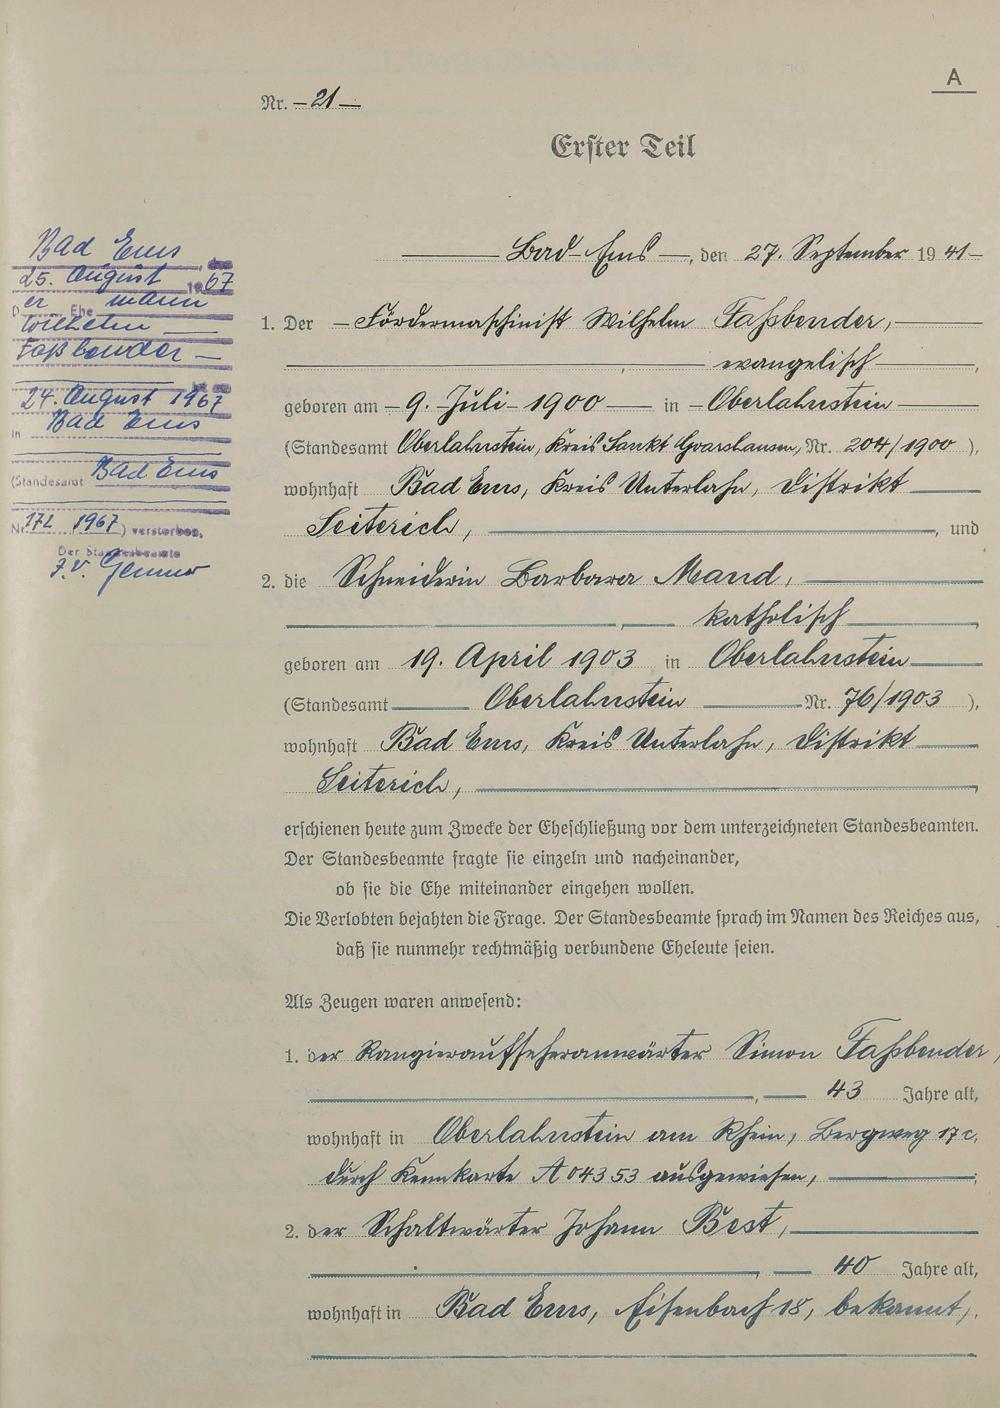 A
Nr. – 21 –
Erster Teil
Bad Ems, den 27. September 1941
1. Der Fördermaschinist Wilhelm Faßbender,
, evangelisch ,
geboren am 9. Juli 1900 in Oberlahnstein
(Standesamt Oberlahnstein, Kreis Sankt Goarshausen, Nr. 204/1900 ),
wohnhaft Bad Ems, Kreis Unterlahn, Distrikt
Seiterich, , und
2. die Schneiderin Barbara Mand,
, katholisch ,
geboren am 19. April 1903 in Oberlahnstein
(Standesamt Oberlahnstein Nr. 76/1903 ),
wohnhaft Bad Ems, Kreis Unterlahn, Distrikt
Seiterich,
erschienen heute zum Zwecke der Eheschließung vor dem unterzeichneten Standesbeamten.
Der Standesbeamte fragte sie einzeln und nacheinander,
ob sie die Ehe miteinander eingehen wollen.
Die Verlobten bejahten die Frage. Der Standesbeamte sprach im Namen des Reiches aus,
daß sie nunmehr rechtmäßig verbundene Eheleute seien.
Als Zeugen waren anwesend:
1. der Rangieraufseheranwärter Simon Faßbender,
, 43 Jahre alt,
wohnhaft in Oberlahnstein am Rhein, Bergweg 17c,
durch Kennkarte A 04353 ausgewiesen, ;
2. der Schaltwärter Johann Best,
, 40 Jahre alt,
wohnhaft in Bad Ems, Eisenbach 18, bekannt,.
Bad Ems, den
25. August 1967
Der Ehemann
Wilhelm
Faßbender
24. August 1967
in Bad Ems
(Standesamt Bad Ems
Nr. 172 1967) verstorben.
Der Standesbeamte
J.V.